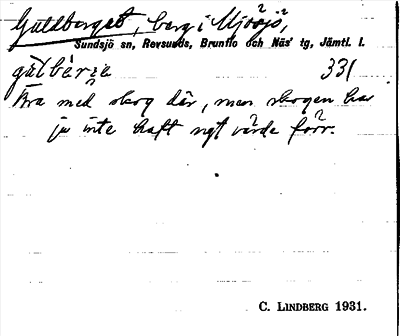 Guldberget, berg i Mjösjö,
Sundsjö sn, Revsunds, Brunflo och Näs' tg, Jämtl. l.
gùlbèrɪe 331
Bra med skog där, men skogen har
ju inte haft ngt värde förr.
C. LINDBERG 1931.